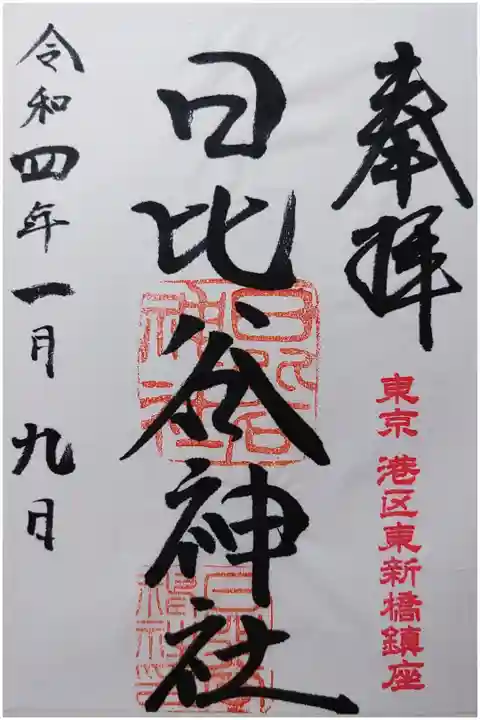 奉拝
東京 港区東新橋鎮座
日比谷神社
日比谷神社
令和四年一月九日